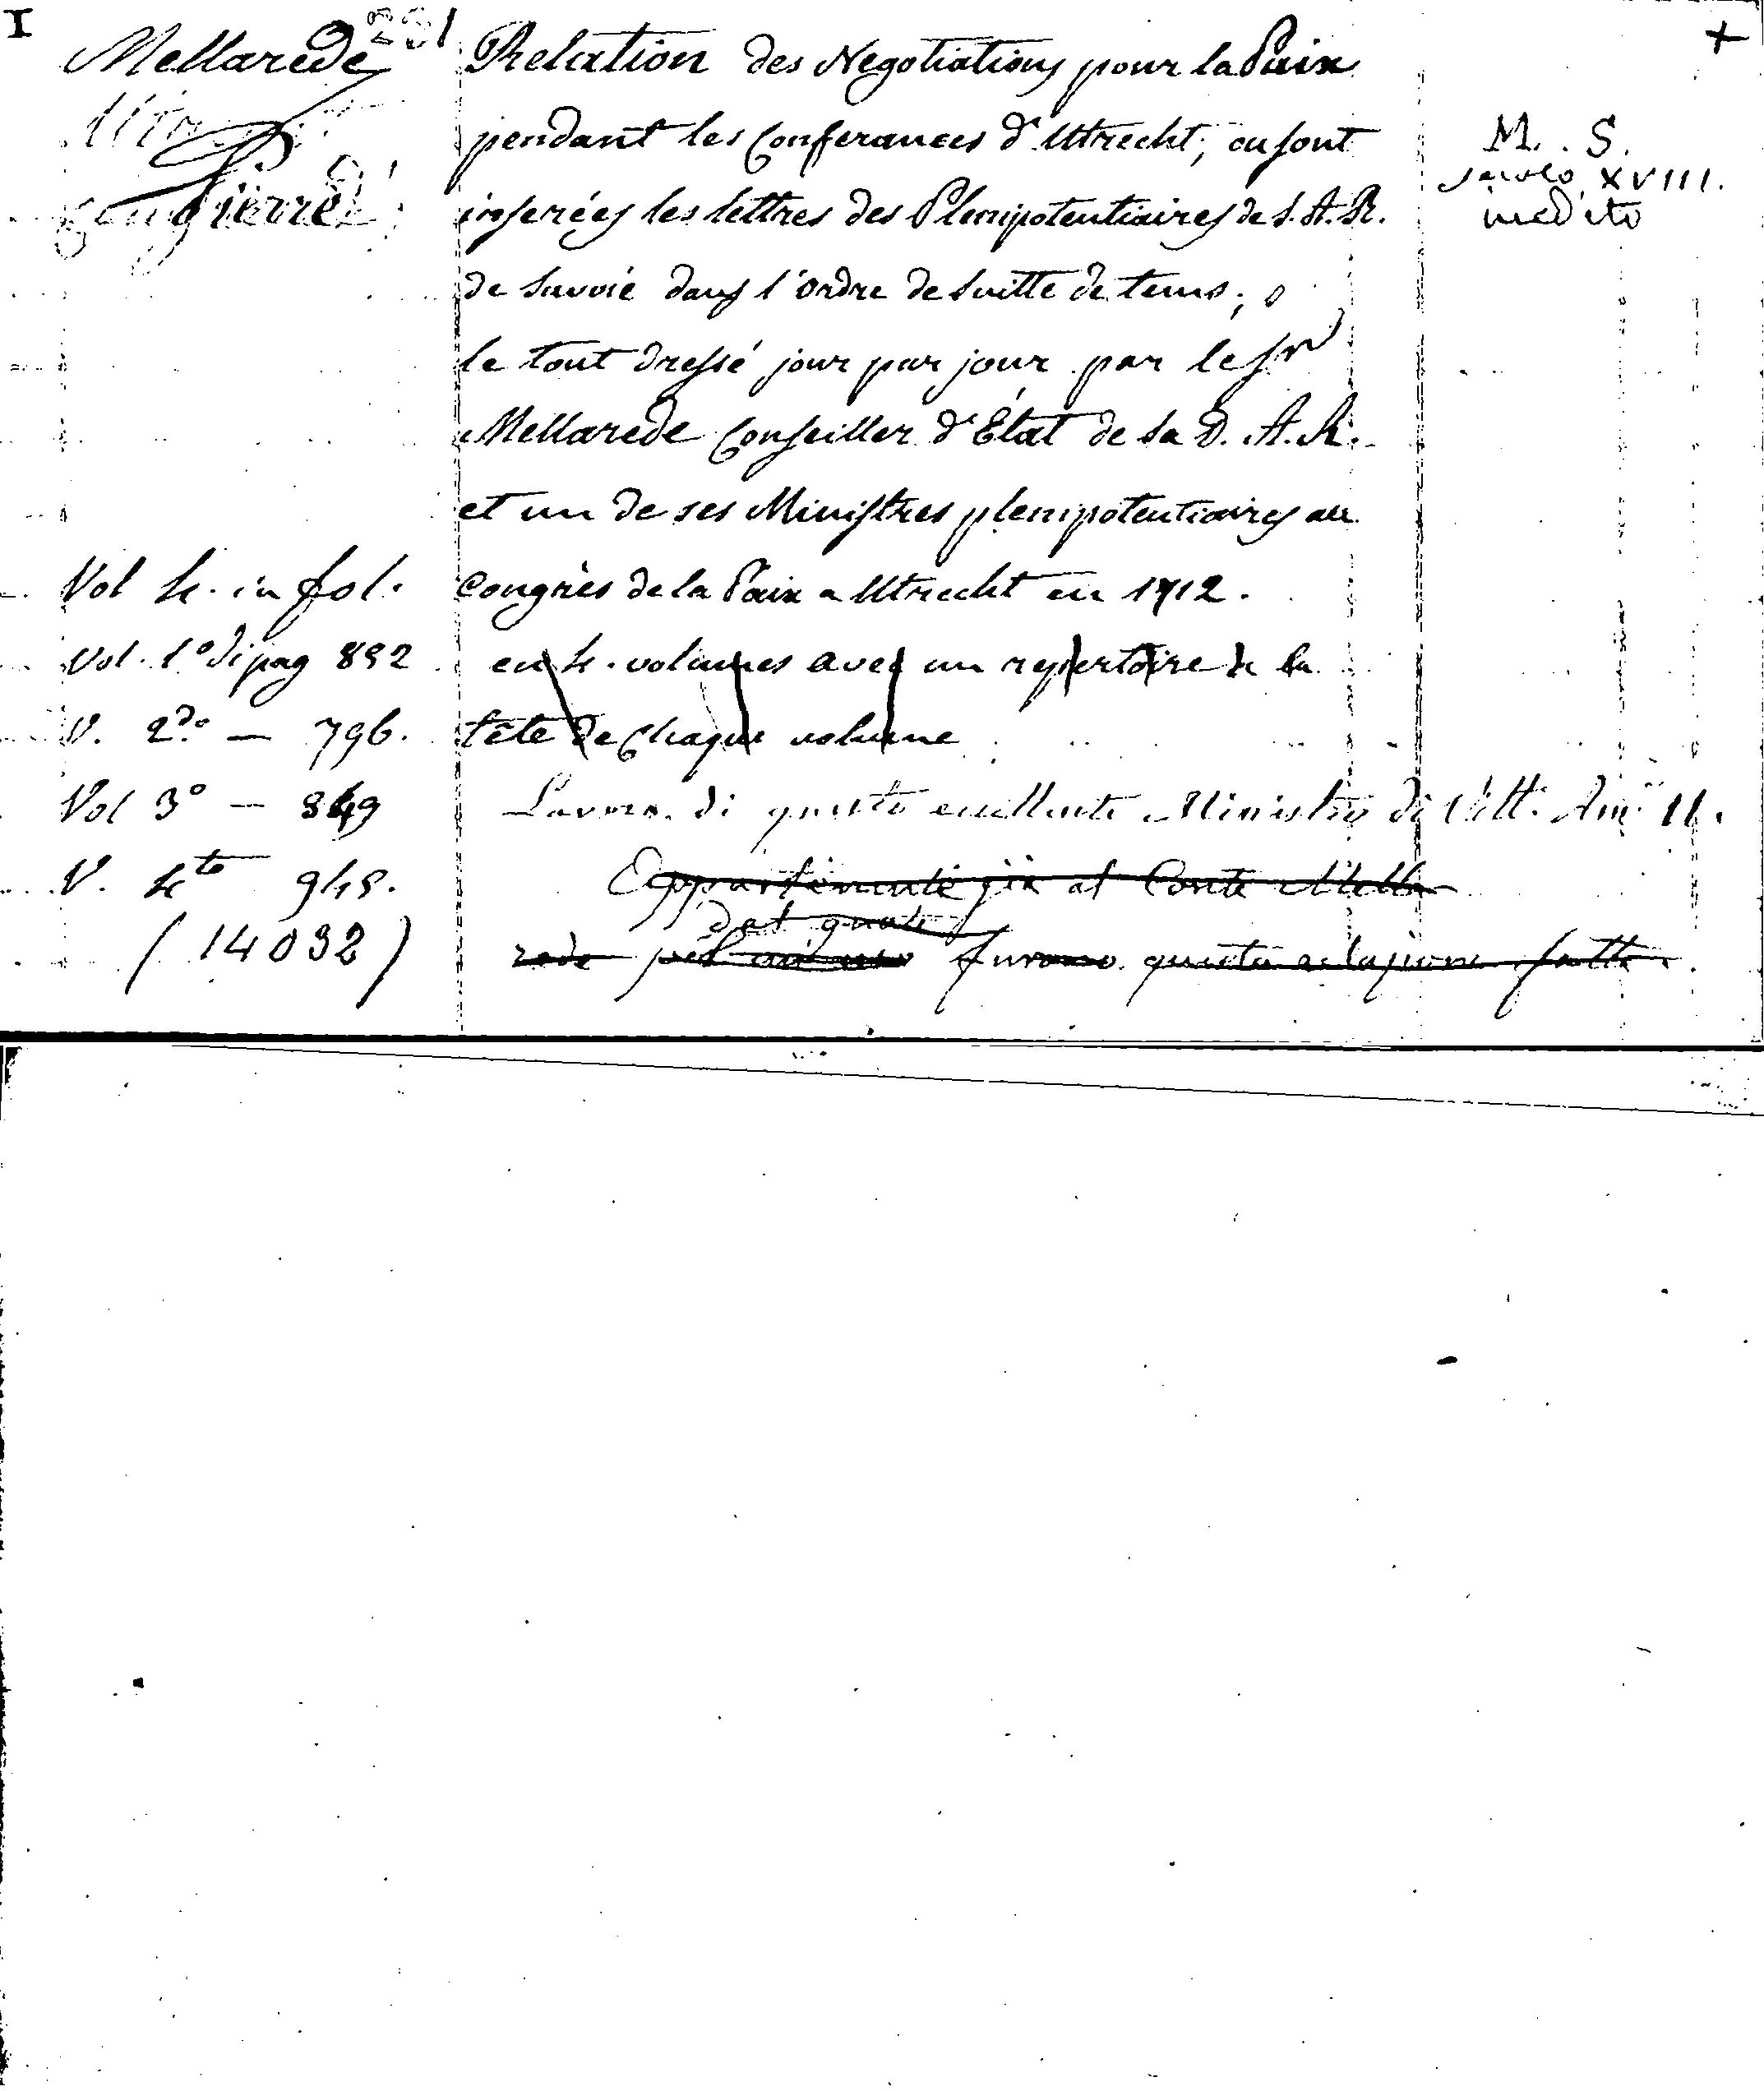 I
+
Mellarede
Pierre
Relation des Negotiations pour la Paix
pendant les Conferances d'Utrecht, ou sont
inserées les lettres des Plenipotentiaires de S. A. R.
de Savoie dans l'ordre de Suitte de tems;
le tout dressé jour par jour par le Sr
Mellarede Conseiller d'Etat de Sa D. A. R.
et un de ses Ministres plenipotentiaires au
Congrès de la Paix a Utrecht en 1712.
en 4. volumes avec un repertoire a la
tête de chaque volume
Lavoro di questo eccellente Ministro di Vitt. Am. II.
Appartenente già al Conte Mella
dal quale
rede furono questa relazione fatte
M. S.
secolo XVIII.
inedito
Vol 4. in fol.
Vol. 1º di pag 892
V. 2do — 796.
Vol 3º — 849
V. 4to 945.
(14032)